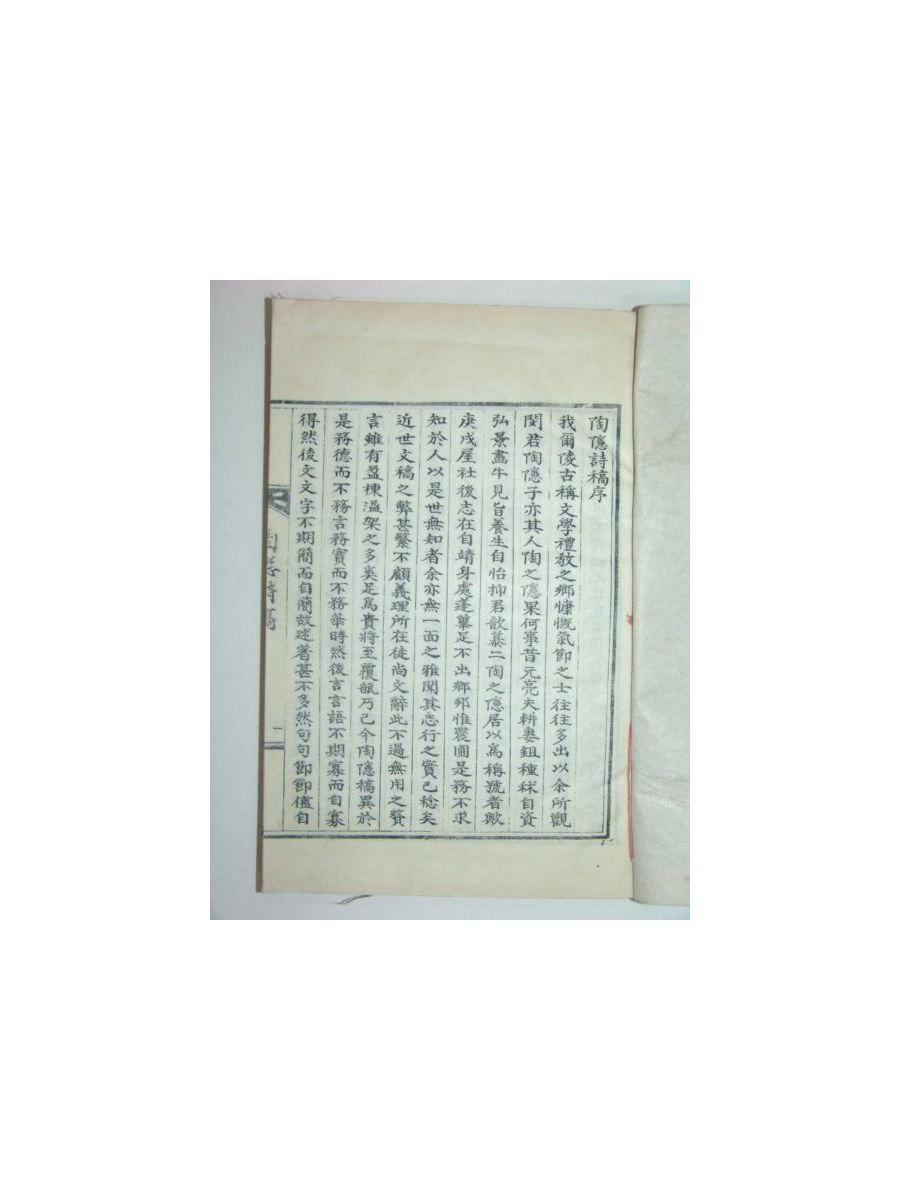 陶隱詩稿序
我爾陵古稱文學禮敎之鄉慷慨氣節之士往往多出以余所觀
閔君陶隱子亦其人陶之隱果何事昔元亮夫耕妻鉏種秫自資
弘景畵牛見旨養生自怡抑君歆慕二陶之隱居以爲稱號者歟
庚戌屋社後志在自靖身處蓬蓽足不出鄉邦惟農圃是務不求
知於人以是世無知者余亦無一面之雅聞其志行之實已稔矣
近世文稿之弊甚繁不顧義理所在徒尚文辭此不過無用之贅
言雖有盈棟溢架之多奚足爲貴將至覆瓿乃已今陶隱稿異於
是務德而不務言務實而不務華時然後言言語不期寡而自寡
得然後文文字不期簡而自簡故述著甚不多然句句節節儘自
陶隱詩稿
一